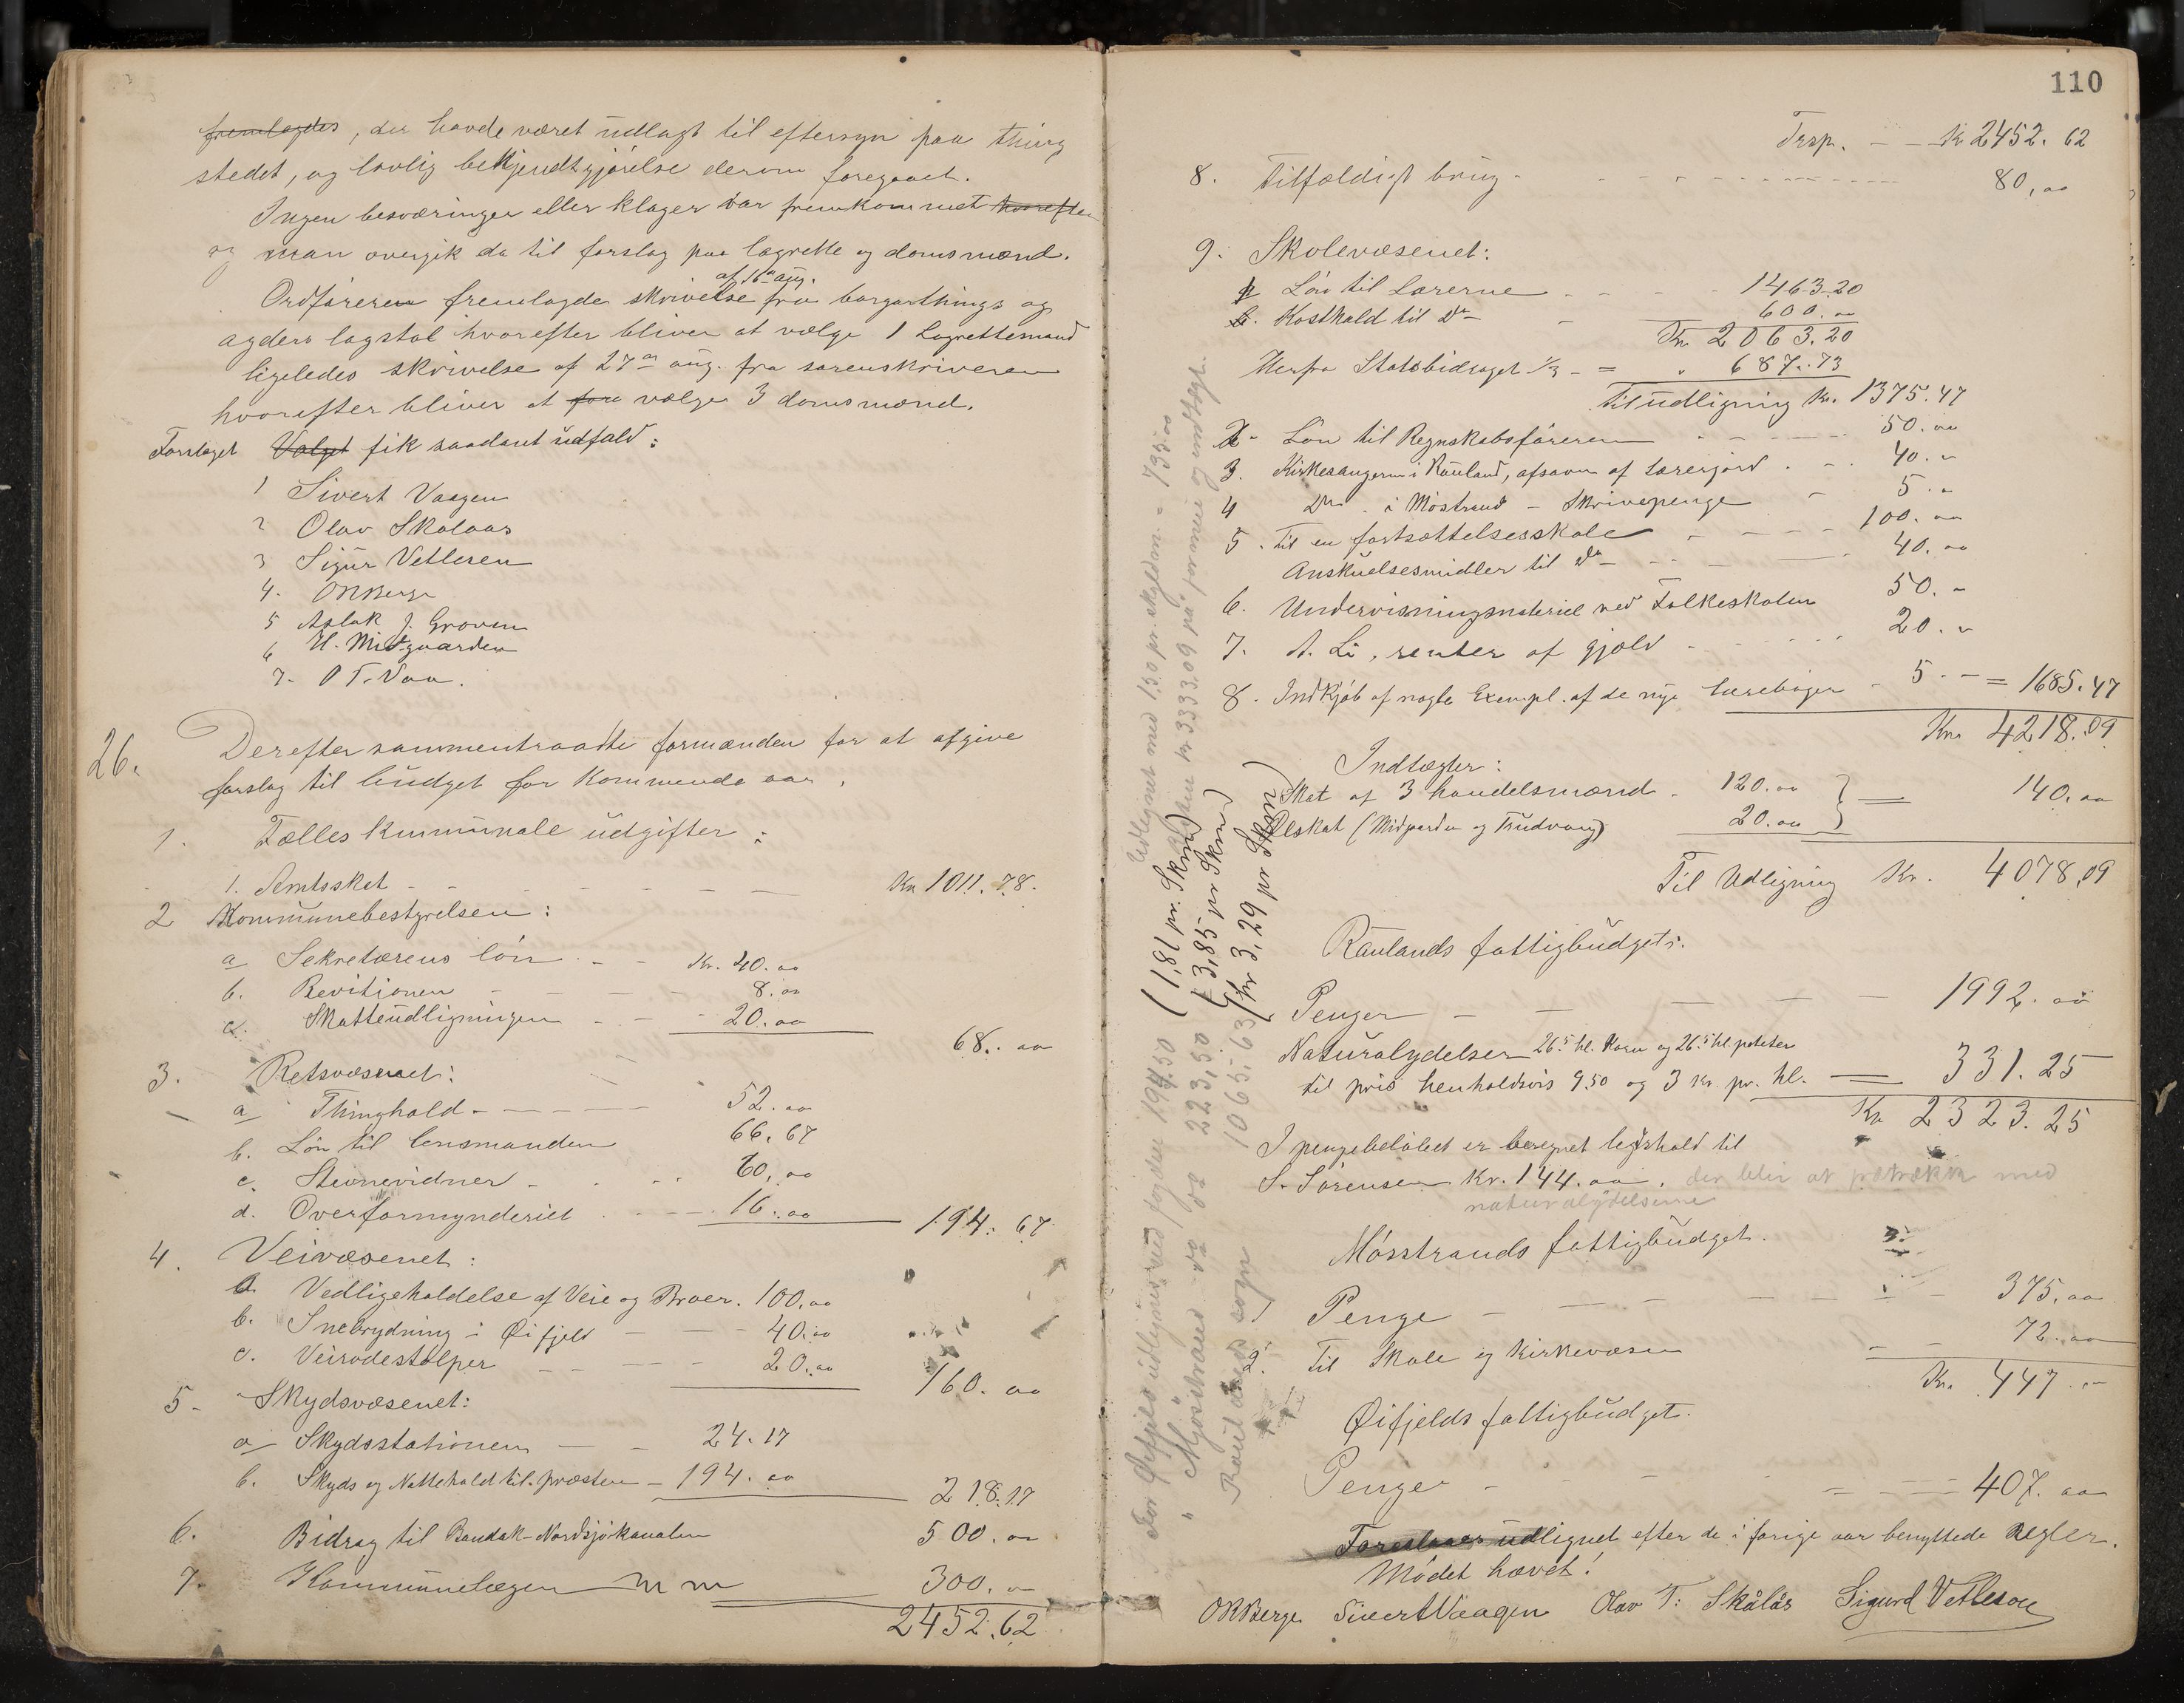 fremlagdes, der havde været udlagt til eftersyn paa thing
stedet, og lovlig bekjendtgjørelse derom foregaaet.
Ingen besværinger eller klager var fremkommet hvorefter
og man overgik da til forslag paa lagrette og domsmænd.
af 16de aug.
Ordføreren fremlagde skrivelse fra borgarthings og
agders lagstol hvorefter bliver at vælge 1 Lagrettemand
ligeledes skrivelse af 27de aug. fra sorenskriveren
hvorefter bliver at fore vælge 3 domsmænd.
Forslaget Valget fik saadant udfald:
1 Sivert Vaagen
2 Olav Skalaas
3 Sigur Vetlesen
4. OKBerge
5 Aslak J. Groven
6 H. Midgaarden
7. O T. Vaa.
26. Derefter sammentraadte formænden for at afgive
forslag til budget for kommende aar.
1. Fælles kummunale udgifter:
1. Amtsskat - - - Kr 1011.78.
2 Kommunebestyrelsen:
a Sekretærens løn - - Kr. 40.00
b. Revitionen - - 8.00
c. Skatteudligningen - - 20.00
68.00
3. Retsvæsenet:
a Thinghold - - - 52.00
b. Løn til lensmanden 66.67
c. Stevnevidner - - 60,00
d. Overformynderiet - - 16.00
194.67
4. Veivæsenet:
a. Vedligeholdelse af Veie og Broer. 100,00
b. Snebrydning i Øifjeld - - 40.00
c. Veirodestolper - - 20.00
160.00
5 - Skydsvæsenet:
a Skydsstationen - - 24.17
b. Skyds og Nattehold til præsten - 194.00
218.17
6. Bidrag til Bandak-Nordsjøkanalen 500.00
7. Kommunelægen m m 300.00
2452.62
110
Trsp. - - Kr 2452.62
8. Tilfældigt brug - - - 80,00
9. Skolevæsenet:
1 Løn til Lærerne - - - 1463.20
b. Kosthold til Do - 600.00
Kr 2063.20
Herfra Statsbidraget 1/3 - = " 687.73
Til udligning Kr. 1375.47
2. Løn til Regnskabsføreren - - - 50.00
3. Kirkesangeren i Rauland, afsavn af Lærerjord - - 40.00
4 Do - i Møstrand - Skrivepenge - 5.00
5. Til en fortsættelsesskole - - - 100.00
Anskuelsesmidler til Do - - - 40.00
6. Undervisningsmateriel ved Folkeskolen 50.-
7. A. Li, renter af gjæld - - - 20.-
8. Indkjøb af nogle Exempl. af de nye Lærebøger - 5.- = 1685.47
Kr. 4218.09
Indtægter:
Skat af 3 handelsmænd - 120.00
140.00
Ølskat (Midgarden og Trudvang) 20.00
Til Udligning Kr. 4078,09
Raulands fattigbudget:
Penger - - - 1992.00
Naturalydelser 26.5 hl. Korn og 26.5 hl. poteter
til pris henholdsvis 9.50 og 3 Kr. pr. hl. — 331.25
Kr 2323.25
I pengebeløbet er beregnet legdshold til
S. Sørensen Kr. 144.00. der blir at fratrække med
naturalydelserne
Møsstrands fattigbudget.
1 Penge - - - 375.00
2. Til Skole og kirkevæsen - - 72.00
Kr. 447.-
Øifjelds fattigbudget.
Penger - - - 407.00
Foreslaaes udlignet efter de i forige aar benyttede Regler.
Mødet hævet!
OKBerge Sivert Vaagen Olav T. Skålås Sigurd Vetleson
(1,81 pr. Skm)
(3,85 pr Skm)
(kr 3,29 pr Skm)
For Øifjeld udlignes ved fogden 194,50
" Mjøsstrand do 00 223,50
Rauland sogn 1065,63
Udlignet med 1,30 pr. skyldm = 735.00